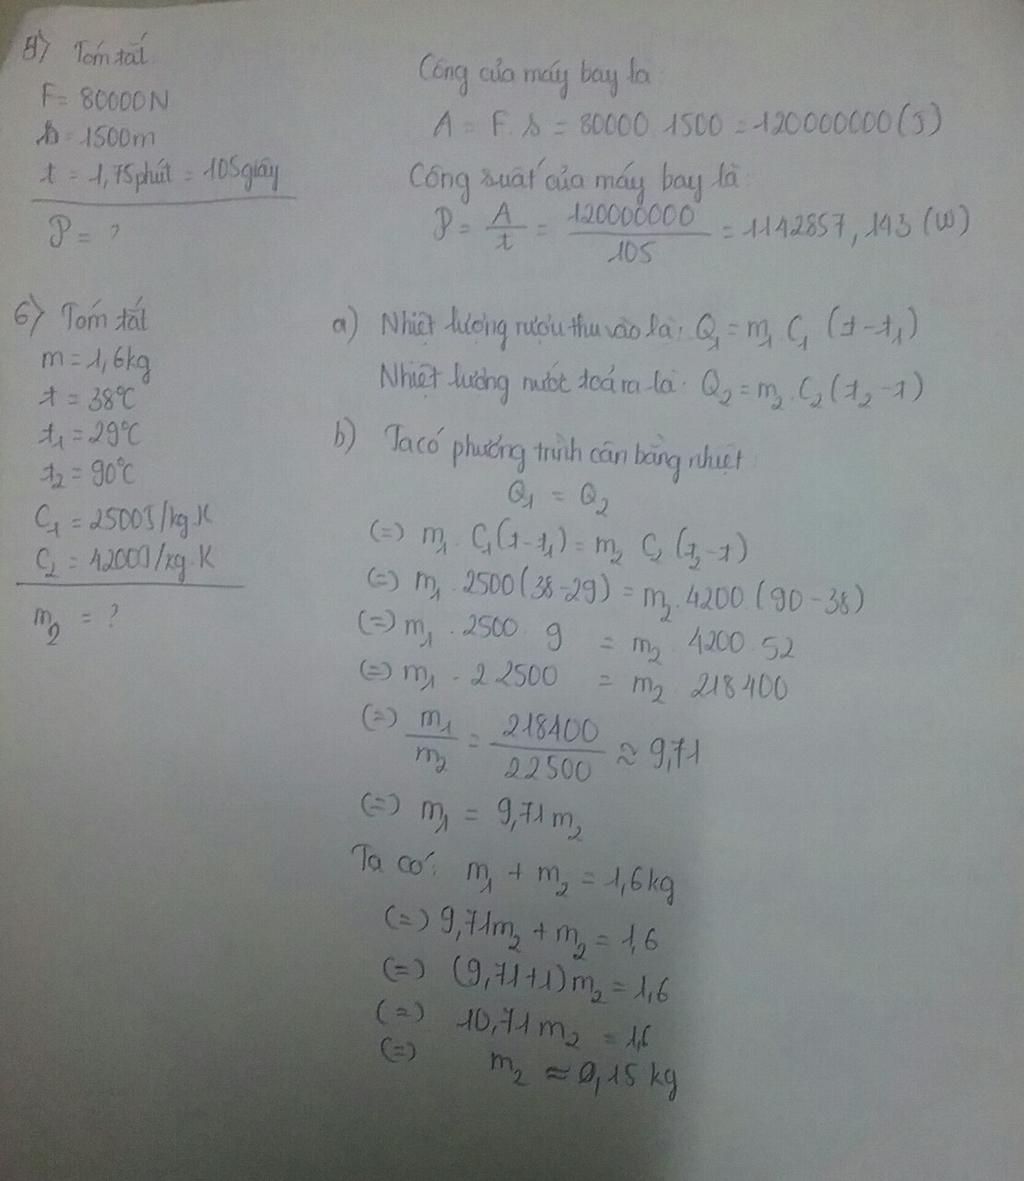 5) Tóm tắt
F = 80000N
s = 1500m
t = 1,75phút = 105giây
P = ?
Công của máy bay là:
A = F.s = 80000.1500 = 120000000(J)
Công suất của máy bay là:
P = A/t = 120000000/105 = 1142857,143 (W)
6) Tóm tắt
m = 1,6kg
t = 38°C
t₁ = 29°C
t₂ = 90°C
C₁ = 2500J/kg.K
C₂ = 4200J/kg.K
m₂ = ?
a) Nhiệt lượng rượu thu vào là: Q₁ = m₁.C₁ (t-t₁)
Nhiệt lượng nước toả ra là: Q₂ = m₂.C₂(t₂-t)
b) Ta có phương trình cân bằng nhiệt:
Q₁ = Q₂
(=) m₁.C₁(t-t₁) = m₂ C₂ (t₂-t)
(=) m₁.2500(38-29) = m₂.4200.(90-38)
(=) m₁.2500.9 = m₂.4200.52
(=) m₁.22500 = m₂ 218400
(=) m₁/m₂ = 218400/22500 ≈ 9,71
(=) m₁ = 9,71m₂
Ta có: m₁ + m₂ = 1,6kg
(=) 9,71m₂ + m₂ = 1,6
(=) (9,71+1)m₂ = 1,6
(=) 10,71m₂ = 1,6
(=) m₂ ≈ 0,15 kg